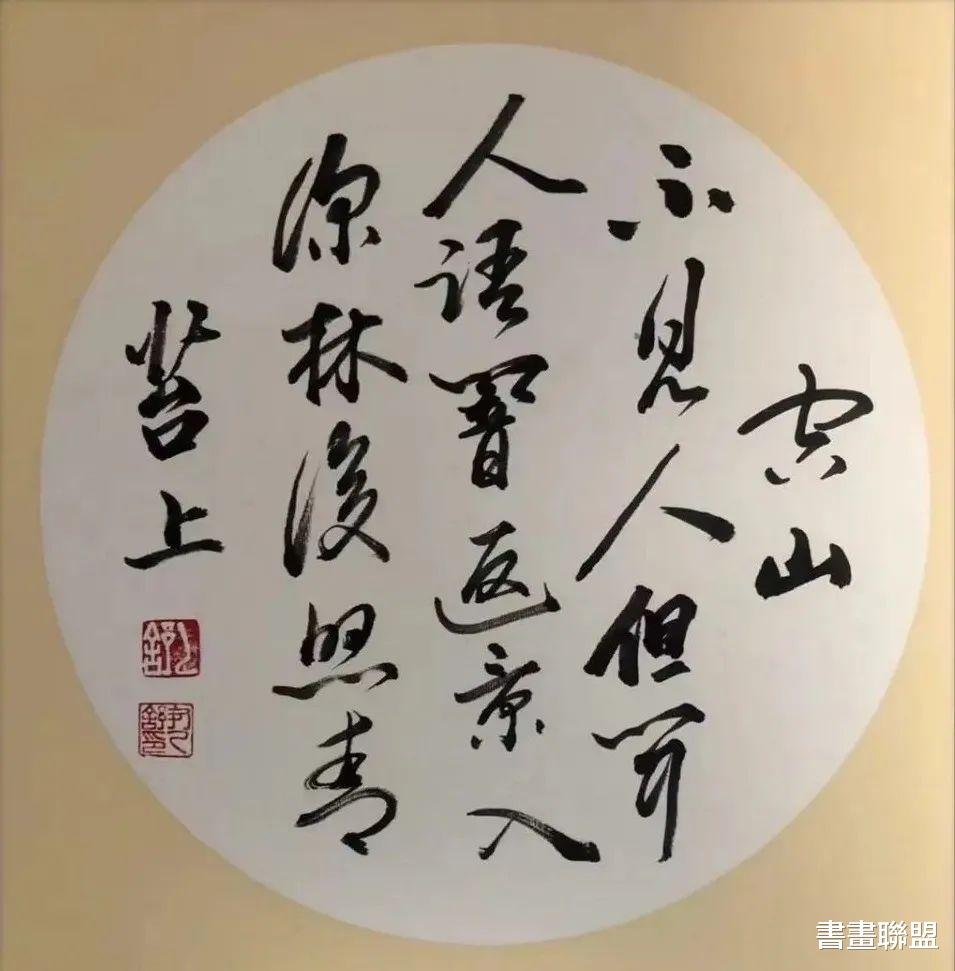 空山
不見人但聞
人語響返景入
深林復照青
苔上
書畫聯盟